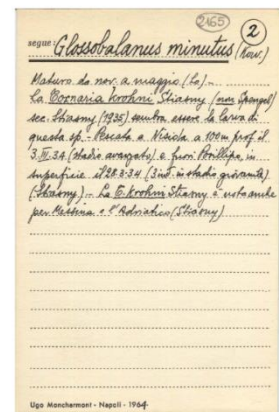 2165
2
segue: Glossobalanus minutus (Kow.)
Maturo da nov. a maggio (Lo) -
La Tornaria Krohni Stiasny (non Spengel)
sec. Stiasny (1935) sembra essere la larva di
questa sp. - Pescata a Nisida a 100 m prof il
3.II.34 (stadio avanzato) e fuori Posillipo, in
superficie il 28.3.34 (3 ind. in stadio giovanile)
(Stiasny) - La T. Krohni Stiasny è nota anche
per Messina e l'Adriatico (Stiasny)
Ugo Moncharmont - Napoli - 1964